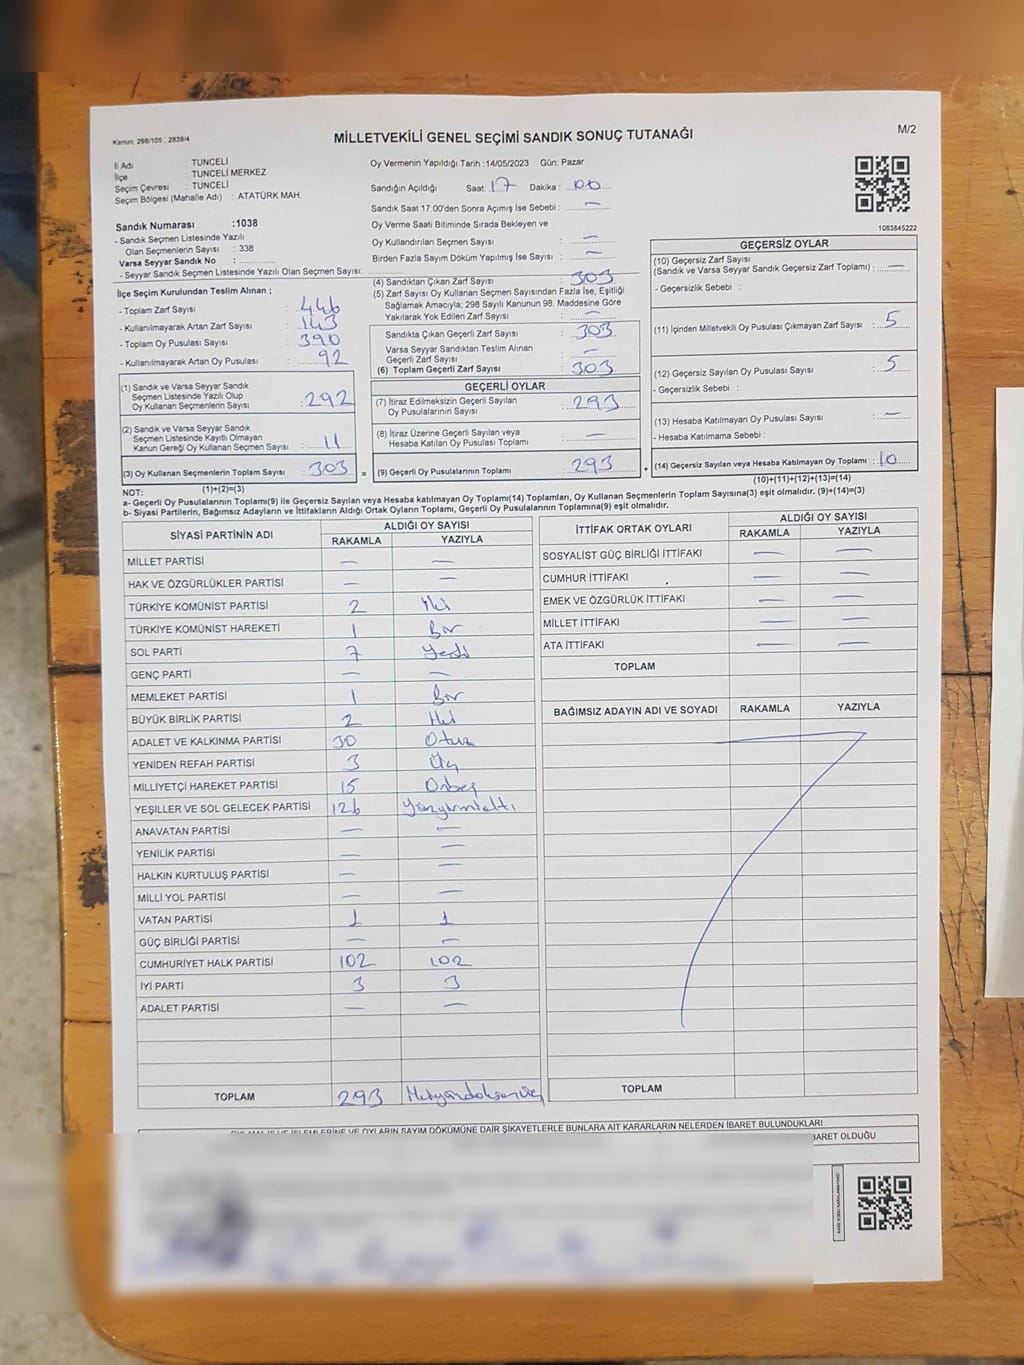 Kanun; 298/105 , 2839/4
MİLLETVEKİLİ GENEL SEÇİMİ SANDIK SONUÇ TUTANAĞI
M/2
İl Adı : TUNCELİ
İlçe : TUNCELİ MERKEZ
Seçim Çevresi : TUNCELİ
Seçim Bölgesi (Mahalle Adı) : ATATÜRK MAH.
Sandık Numarası :1038
- Sandık Seçmen Listesinde Yazılı
Olan Seçmenlerin Sayısı : 338
Varsa Seyyar Sandık No :
- Seyyar Sandık Seçmen Listesinde Yazılı Olan Seçmen Sayısı:
Oy Vermenin Yapıldığı Tarih :14/05/2023 Gün: Pazar
Sandığın Açıldığı Saat: 17 Dakika : 00
Sandık Saat 17:00'den Sonra Açımış İse Sebebi : —
Oy Verme Saati Bitiminde Sırada Bekleyen ve
Oy Kullandırılan Seçmen Sayısı : —
Birden Fazla Sayım Döküm Yapılmış İse Sayısı : —
1083845222
İlçe Seçim Kurulundan Teslim Alınan ;
- Toplam Zarf Sayısı : 446
- Kullanılmayarak Artan Zarf Sayısı : 143
- Toplam Oy Pusulası Sayısı : 390
- Kullanılmayarak Artan Oy Pusulası : 92
(1) Sandık ve Varsa Seyyar Sandık
Seçmen Listesinde Yazılı Olup
Oy Kullanan Seçmenlerin Sayısı : 292
(2) Sandık ve Varsa Seyyar Sandık
Seçmen Listesinde Kayıtlı Olmayan
Kanun Gereği Oy Kullanan Seçmen Sayısı : 11
(3) Oy Kullanan Seçmenlerin Toplam Sayısı : 303 =
(1)+(2)=(3)
(4) Sandıktan Çıkan Zarf Sayısı : 303
(5) Zarf Sayısı Oy Kullanan Seçmen Sayısından Fazla İse, Eşitliği
Sağlamak Amacıyla; 298 Sayılı Kanunun 98. Maddesine Göre
Yakılarak Yok Edilen Zarf Sayısı : —
Sandıkta Çıkan Geçerli Zarf Sayısı : 303
Varsa Seyyar Sandıktan Teslim Alınan
Geçerli Zarf Sayısı : —
(6) Toplam Geçerli Zarf Sayısı : 303
GEÇERLİ OYLAR
(7) İtiraz Edilmeksizin Geçerli Sayılan
Oy Pusulalarının Sayısı : 293
(8) İtiraz Üzerine Geçerli Sayılan veya
Hesaba Katılan Oy Pusulası Toplamı : —
(9) Geçerli Oy Pusulalarının Toplamı : 293 +
GEÇERSİZ OYLAR
(10) Geçersiz Zarf Sayısı
(Sandık ve Varsa Seyyar Sandık Geçersiz Zarf Toplamı) : —
- Geçersizlik Sebebi :
(11) İçinden Milletvekili Oy Pusulası Çıkmayan Zarf Sayısı : 5
(12) Geçersiz Sayılan Oy Pusulası Sayısı : 5
- Geçersizlik Sebebi :
(13) Hesaba Katılmayan Oy Pusulası Sayısı : —
- Hesaba Katılmama Sebebi :
(14) Geçersiz Sayılan veya Hesaba Katılmayan Oy Toplamı : 10
(10)+(11)+(12)+(13)=(14)
NOT:
a- Geçerli Oy Pusulalarının Toplamı(9) ile Geçersiz Sayılan veya Hesaba katılmayan Oy Toplamı(14) Toplamları, Oy Kullanan Seçmenlerin Toplam Sayısına(3) eşit olmalıdır. (9)+(14)=(3)
b- Siyasi Partilerin, Bağımsız Adayların ve İttifakların Aldığı Ortak Oyların Toplamı, Geçerli Oy Pusulalarının Toplamına(9) eşit olmalıdır.
SİYASİ PARTİNİN ADI ALDIĞI OY SAYISI
RAKAMLA YAZIYLA
MİLLET PARTİSİ — —
HAK VE ÖZGÜRLÜKLER PARTİSİ — —
TÜRKİYE KOMÜNİST PARTİSİ 2 iki
TÜRKİYE KOMÜNİST HAREKETİ 1 Bir
SOL PARTİ 7 Yedi
GENÇ PARTİ — —
MEMLEKET PARTİSİ 1 Bir
BÜYÜK BİRLİK PARTİSİ 2 iki
ADALET VE KALKINMA PARTİSİ 30 Otuz
YENİDEN REFAH PARTİSİ 3 Üç
MİLLİYETÇİ HAREKET PARTİSİ 15 Onbeş
YEŞİLLER VE SOL GELECEK PARTİSİ 126 Yüzyirmialtı
ANAVATAN PARTİSİ — —
YENİLİK PARTİSİ — —
HALKIN KURTULUŞ PARTİSİ — —
MİLLİ YOL PARTİSİ — —
VATAN PARTİSİ 1 1
GÜÇ BİRLİĞİ PARTİSİ — —
CUMHURİYET HALK PARTİSİ 102 102
İYİ PARTİ 3 3
ADALET PARTİSİ — —
TOPLAM 293
İTTİFAK ORTAK OYLARI ALDIĞI OY SAYISI
RAKAMLA YAZIYLA
SOSYALİST GÜÇ BİRLİĞİ İTTİFAKI — —
CUMHUR İTTİFAKI — —
EMEK VE ÖZGÜRLÜK İTTİFAKI — —
MİLLET İTTİFAKI — —
ATA İTTİFAKI — —
TOPLAM
BAĞIMSIZ ADAYIN ADI VE SOYADI RAKAMLA YAZIYLA
TOPLAM
İŞLEMLERİNE VE OYLARIN SAYIM DÖKÜMÜNE DAİR ŞİKAYETLERLE BUNLARA AİT KARARLARIN NELERDEN İBARET BULUNDUKLARI
BARET OLDUĞU